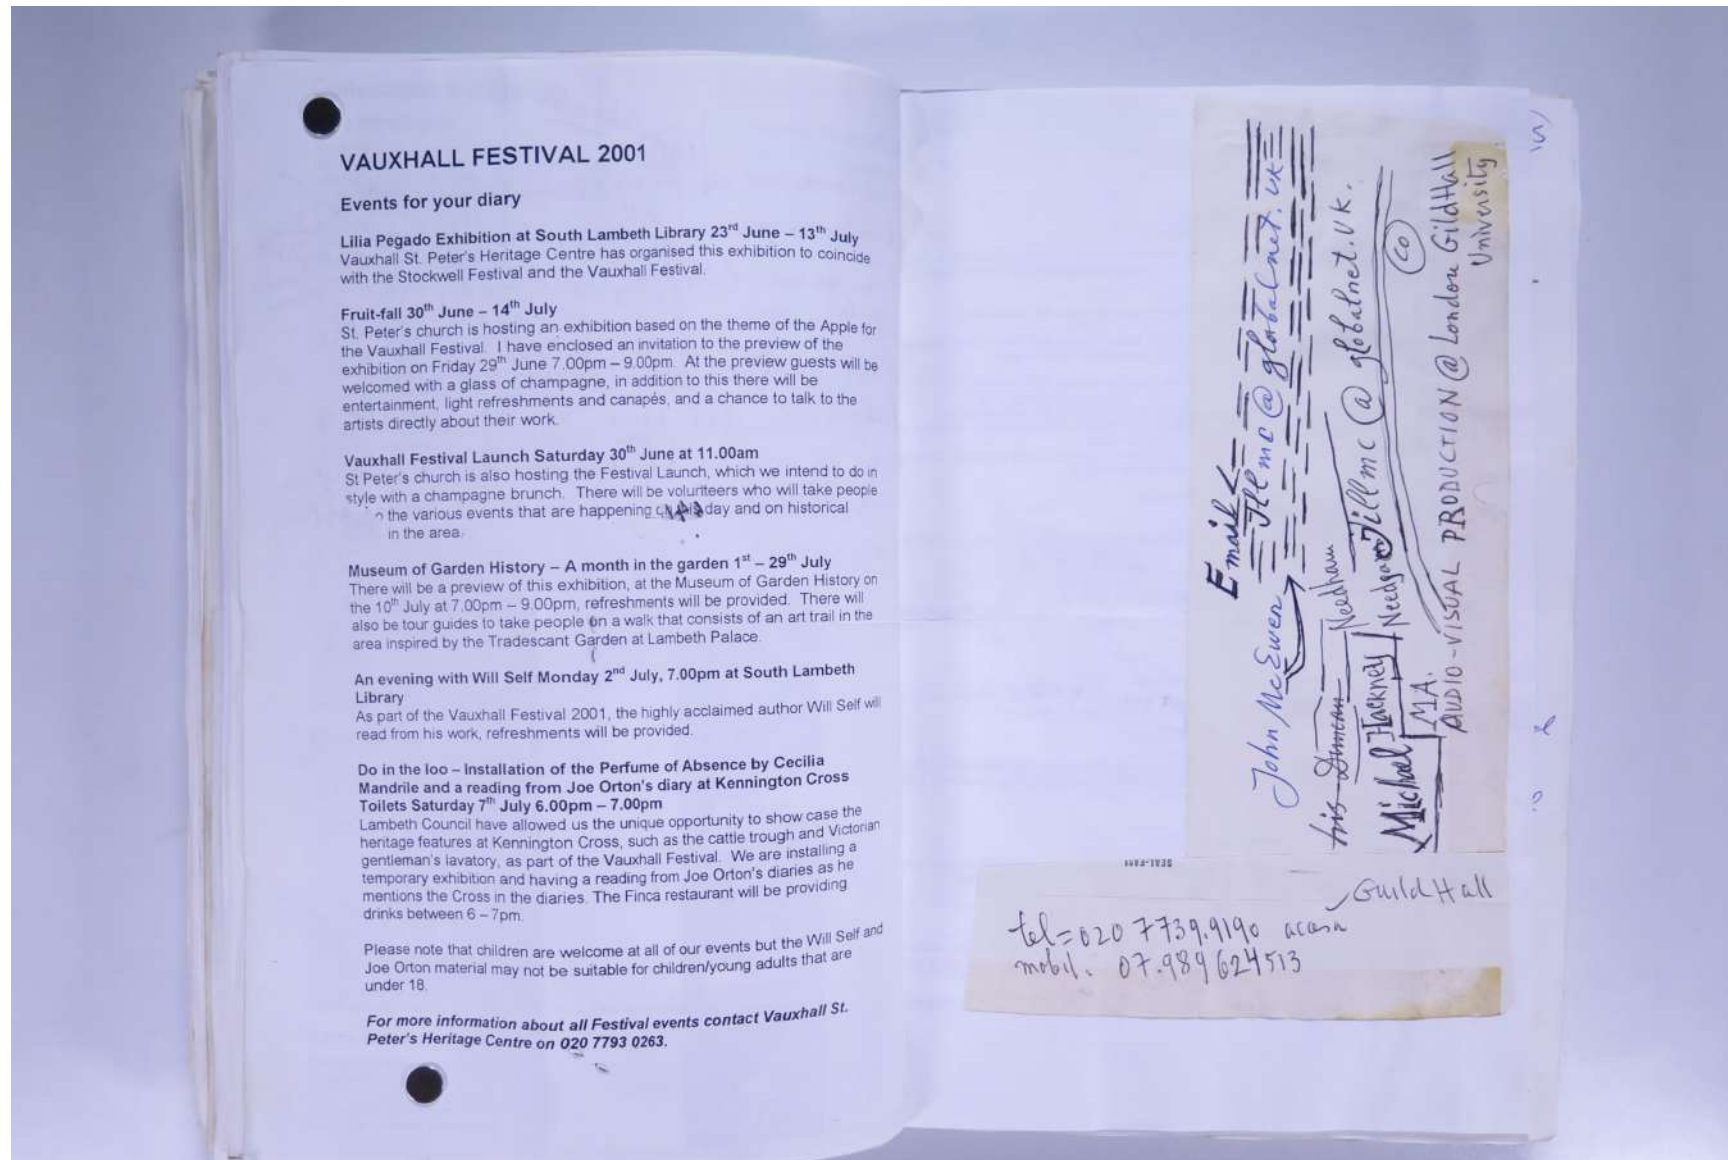 VAUXHALL FESTIVAL 2001
Events for your diary
Lilia Pegado Exhibition at South Lambeth Library 23rd June – 13th July
Vauxhall St. Peter's Heritage Centre has organised this exhibition to coincide
with the Stockwell Festival and the Vauxhall Festival.
Fruit-fall 30th June – 14th July
St. Peter's church is hosting an exhibition based on the theme of the Apple for
the Vauxhall Festival. I have enclosed an invitation to the preview of the
exhibition on Friday 29th June 7.00pm – 9.00pm. At the preview guests will be
welcomed with a glass of champagne, in addition to this there will be
entertainment, light refreshments and canapés, and a chance to talk to the
artists directly about their work.
Vauxhall Festival Launch Saturday 30th June at 11.00am
St Peter's church is also hosting the Festival Launch, which we intend to do in
style with a champagne brunch. There will be volunteers who will take people
the various events that are happening day and on historical
in the area.
Museum of Garden History – A month in the garden 1st – 29th July
There will be a preview of this exhibition, at the Museum of Garden History on
the 10th July at 7.00pm – 9.00pm, refreshments will be provided. There will
also be tour guides to take people on a walk that consists of an art trail in the
area inspired by the Tradescant Garden at Lambeth Palace.
An evening with Will Self Monday 2nd July, 7.00pm at South Lambeth
Library
As part of the Vauxhall Festival 2001, the highly acclaimed author Will Self will
read from his work, refreshments will be provided.
Do in the loo – Installation of the Perfume of Absence by Cecilia
Mandrile and a reading from Joe Orton's diary at Kennington Cross
Toilets Saturday 7th July 6.00pm – 7.00pm
Lambeth Council have allowed us the unique opportunity to show case the
heritage features at Kennington Cross, such as the cattle trough and Victorian
gentleman's lavatory, as part of the Vauxhall Festival. We are installing a
temporary exhibition and having a reading from Joe Orton's diaries as he
mentions the Cross in the diaries. The Finca restaurant will be providing
drinks between 6 – 7pm.
Please note that children are welcome at all of our events but the Will Self and
Joe Orton material may not be suitable for children/young adults that are
under 18.
For more information about all Festival events contact Vauxhall St.
Peter's Heritage Centre on 020 7793 0263.
Email
John McEwen Jllmc@globalnet.UK
Duncan Needham
Michael Hackney Needgam Jillmc@globalnet.UK.
co
M.A.
AUDIO-VISUAL PRODUCTION @ London GildHall
University
GuildHall
tel=020 7739.9190 acasa
mobil. 07.989624513